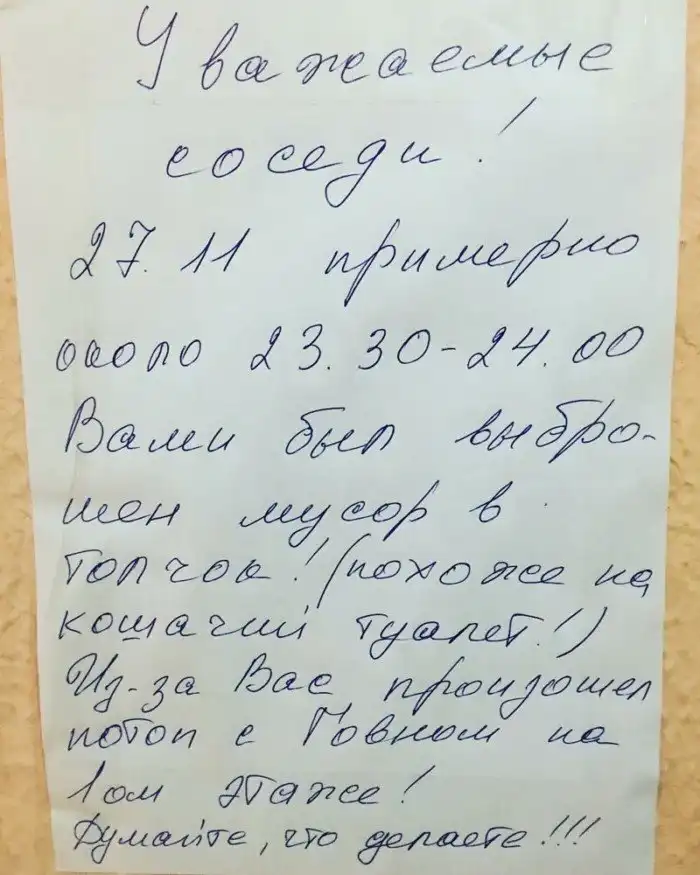 Уважаемые
соседи!
27.11 примерно
около 23.30-24.00
Вами был выбро-
шен мусор в
толчок! (похоже на
кошачий туалет!)
Из-за Вас произошел
потоп с Говном на
1ом этаже!
Думайте, что делаете!!!